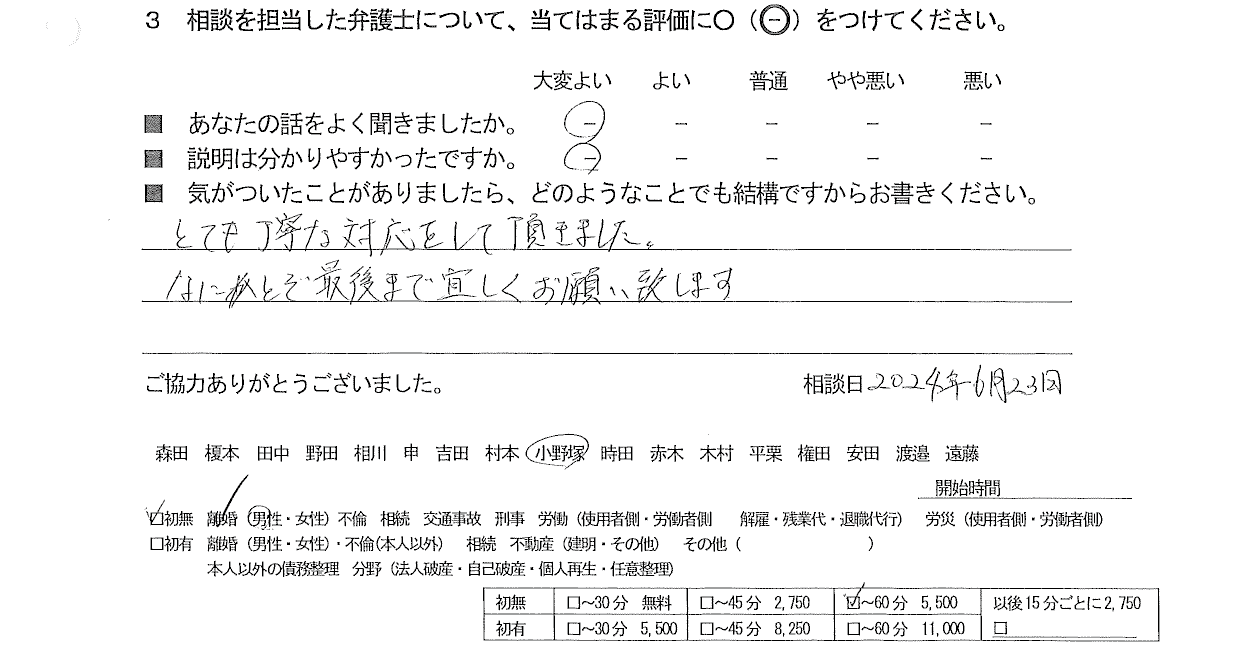 3 相談を担当した弁護士について、当てはまる評価に〇(㊀)をつけてください。
大変よい よい 普通 やや悪い 悪い
■ あなたの話をよく聞きましたか。 － － － － －
■ 説明は分かりやすかったですか。 － － － － －
■ 気がついたことがありましたら、どのようなことでも結構ですからお書きください。
とても丁寧な対応をして頂きました。
なにとぞ最後まで宜しくお願い致します
ご協力ありがとうございました。 相談日 2024年6月23日
森田 榎本 田中 野田 相川 申 吉田 村本 小野塚 時田 赤木 木村 平栗 権田 安田 渡邉 遠藤
開始時間
☑初無 離婚(男性・女性)不倫 相続 交通事故 刑事 労働(使用者側・労働者側 解雇・残業代・退職代行) 労災(使用者側・労働者側)
□初有 離婚(男性・女性)・不倫(本人以外) 相続 不動産(建明・その他) その他( )
本人以外の債務整理 分野(法人破産・自己破産・個人再生・任意整理)
初無 □～30分 無料 □～45分 2,750 ☑～60分 5,500 以後15分ごとに2,750
初有 □～30分 5,500 □～45分 8,250 □～60分 11,000 □